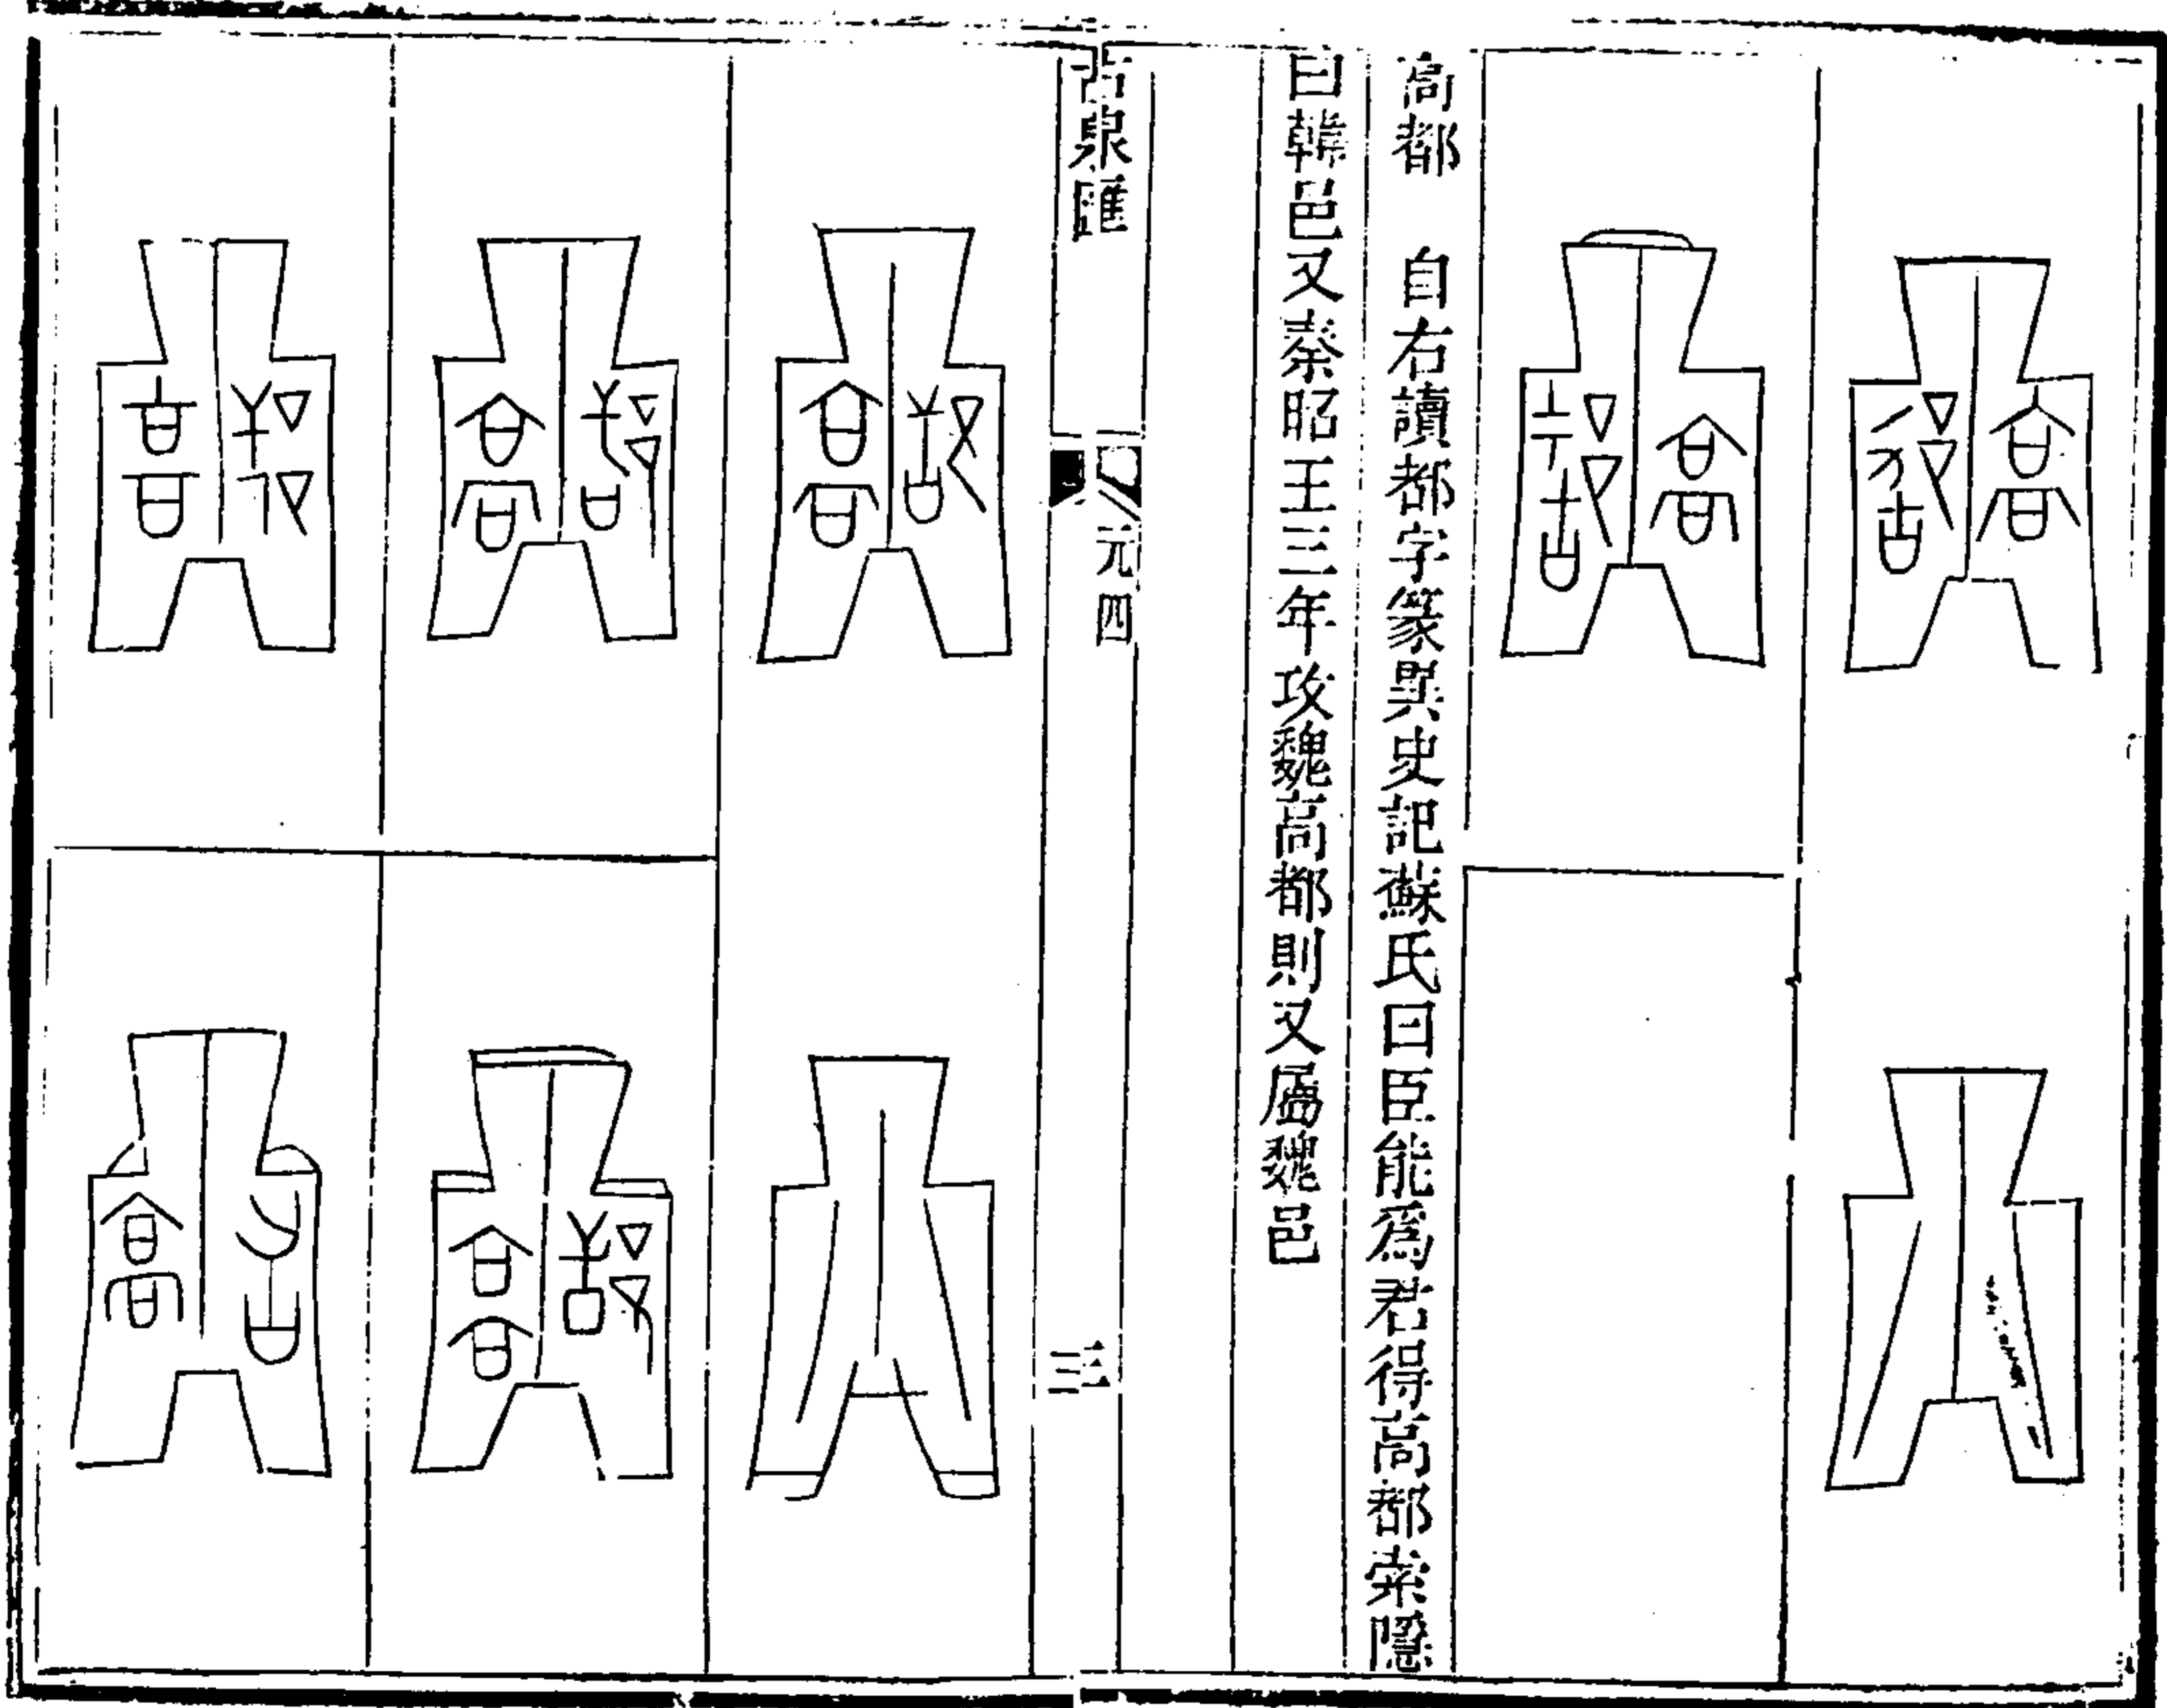 高都　自右讀都字篆異史記蘇氏曰臣能爲君得高都索隱
曰韓邑又秦昭王三年攻魏高都則又屬魏邑
古泉匯
元四
三